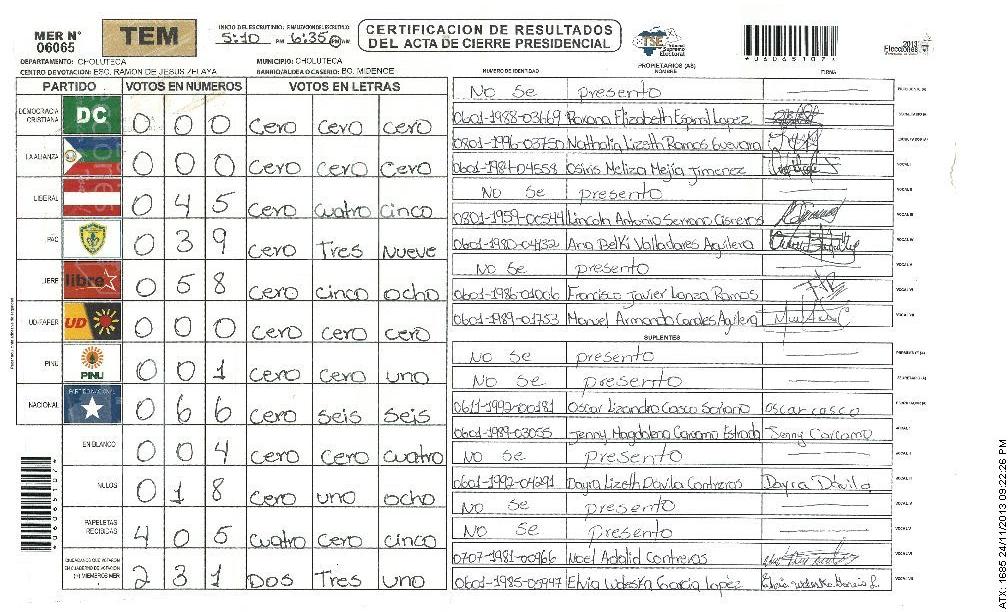 MER N° 06065
TEM
INICIO DE ESCRUTINIO: FINALIZACION DE ESCRUTINIO
5:10 PM 6:35 PM
CERTIFICACION DE RESULTADOS
DEL ACTA DE CIERRE PRESIDENCIAL
TSE Tribunal Supremo Electoral
*06065107*
2013 Elecciones
DEPARTAMENTO: CHOLUTECA MUNICIPIO: CHOLUTECA
CENTRO DE VOTACION: ESC. RAMON DE JESUS ZELAYA BARRIO/ALDEA O CASERIO: BO. MIDENCE
NUMERO DE IDENTIDAD PROPIETARIOS (AS) NOMBRE FIRMA
PARTIDO VOTOS EN NUMEROS VOTOS EN LETRAS
DEMOCRACIA CRISTIANA DC 0 0 0 Cero Cero Cero
LA ALIANZA 0 0 0 Cero Cero Cero
LIBERAL 0 4 5 Cero cuatro cinco
PAC 0 3 9 Cero Tres Nueve
LIBRE libre 0 5 8 Cero cinco ocho
UD-FAPER UD 0 0 0 Cero Cero Cero
PINU PINU 0 0 1 Cero Cero uno
NACIONAL PARTIDO NACIONAL 0 6 6 Cero seis seis
EN BLANCO 0 0 4 Cero Cero cuatro
NULOS 0 1 8 Cero uno ocho
PAPELETAS RECIBIDAS 4 0 5 Cuatro Cero cinco
CIUDADANOS QUE VOTARON EN CUADERNO DE VOTACION (+) MIEMBROS MER 2 3 1 Dos Tres uno
*06065107*
No Se presento
0601-1988-03669 Roxana Elizabeth Espinal Lopez
0801-1996-03750 Nathalia Lizeth Ramos Guevara
0601-1984-04558 Osiris Meliza Mejía Jimenez
No Se presento
0801-1959-00544 Lincoln Antonio Serrano Cisneros
0601-1980-04132 Ana Belki Valladares Aguilera
No Se presento
0601-1986-01006 Francisco Javier Lanza Ramos
0601-1989-01753 Manuel Armando Canales Aguilera
SUPLENTES
No Se presento
No Se presento
0611-1992-00181 Oscar Lizandro Casco Soriano oscar casco
0601-1989-03055 Jenny Magdalena Carcamo Estrada Jenny Carcamo
No Se presento
0601-1992-04291 Dayra Lizeth Davila Contreras Dayra Dávila
No Se presento
No Se presento
0707-1981-00966 Noel Adalid Contreras
0601-1985-03947 Elvia Waleska Garcia Lopez
ATX: 1685 24/11/2013 09:22:26 PM